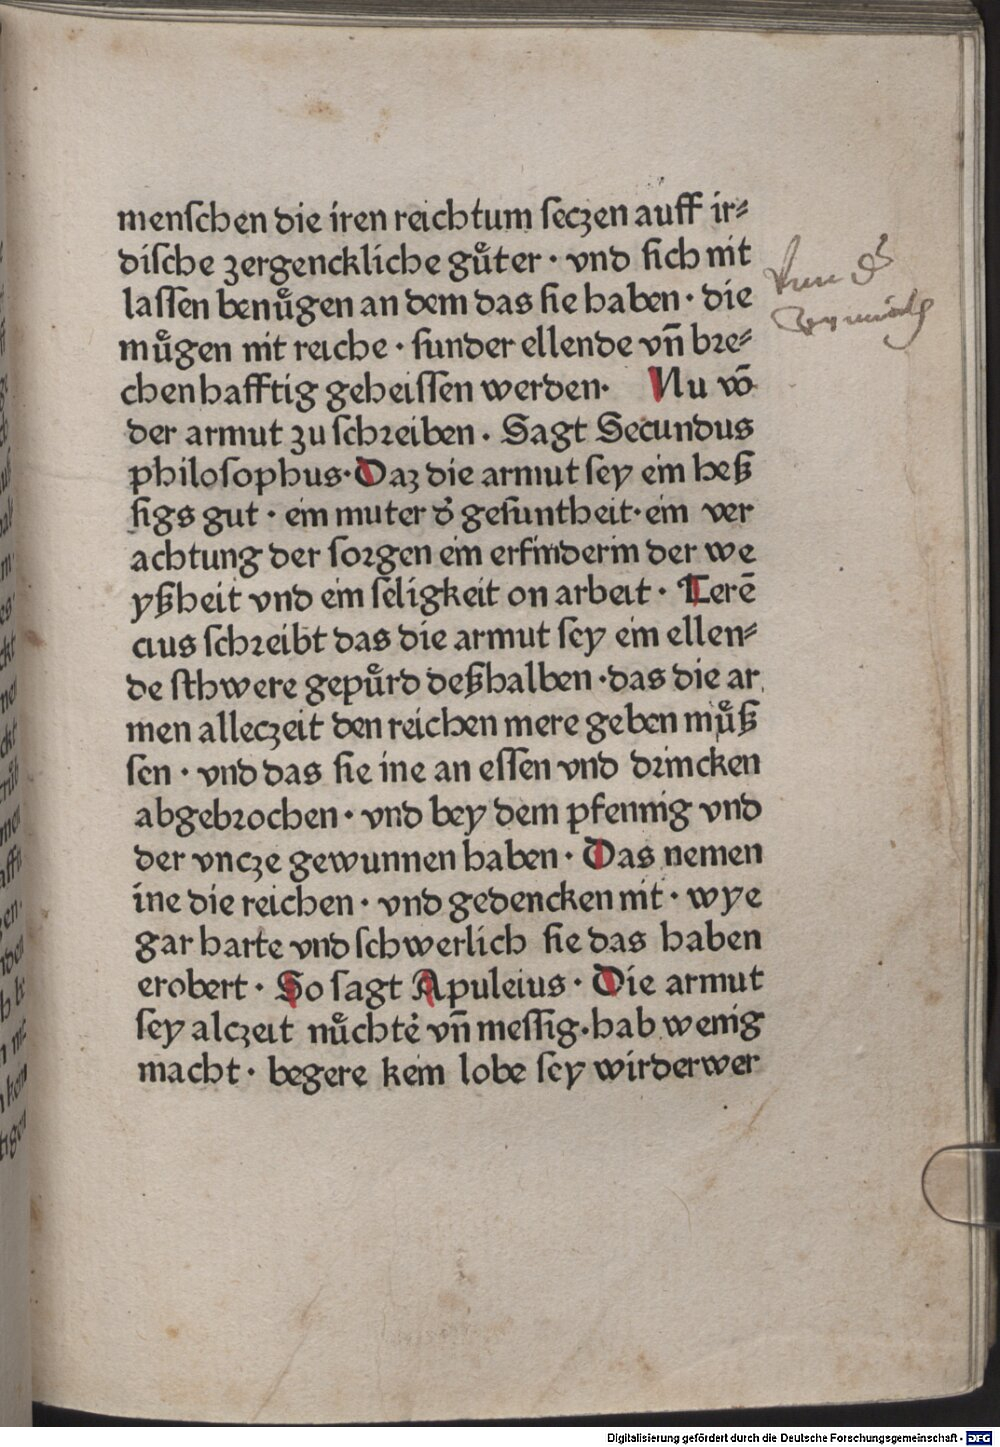 menſchen die iren reichtum ſeczen auff ir⸗
diſche zergenckliche guͤter · vnd ſich nit
laſſen benuͤgen an dem das ſie haben · die
muͤgen nit reiche · ſunder ellende vn̄ bꝛe⸗
chenhafftig geheiſſen werden · Nu vō
der armut zu ſchꝛeiben · Sagt Secundus
philoſophus · Daz die armut ſey ein heß
ſigs gut · ein muter dˀ geſuntheit · ein ver
achtung der ſoꝛgen ein erfinderin der we
yßheit vnd ein ſeligkeit on arbeit · Terē
cius ſchꝛeibt das die armut ſey ein ellen⸗
de ſchwere gepuͤrd deßhalben · das die ar
men alleczeit den reichen mere geben muͤß
ſen · vnd das ſie ine an eſſen vnd dꝛincken
abgebꝛochen · vnd bey dem pfennig vnd
der vncze gewunnen haben · Das nemen
ine die reichen · vnd gedencken nit · wye
gar harte vnd ſchwerlich ſie das haben
erobert · So ſagt Apuleius · Die armut
ſey alczeit nuͤchteˀ vn̄ meſſig · hab wenig
macht · begere kein lobe ſey wirderwer
Digitalisierung gefördert durch die Deutsche Forschungsgemeinschaft - DFG